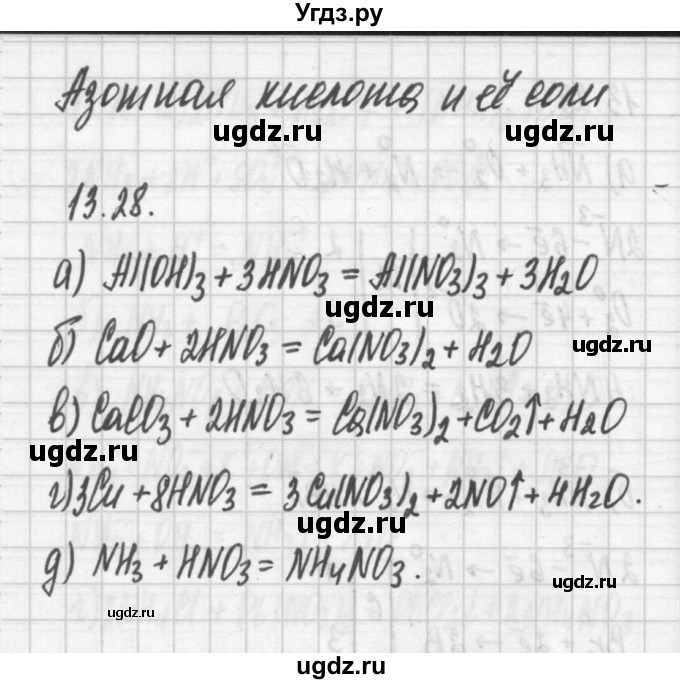 Угдз.ру
Азотная кислота и её соли
ugdz.ru
ugdz.ru
13.28.
а) Al(OH)₃ + 3HNO₃ = Al(NO₃)₃ + 3H₂O
ugdz.ru
б) CaO + 2HNO₃ = Ca(NO₃)₂ + H₂O
ugdz.ru
в) CaCO₃ + 2HNO₃ = Ca(NO₃)₂ + CO₂↑ + H₂O
ugdz.ru
ugdz.ru
г) 3Cu + 8HNO₃ = 3Cu(NO₃)₂ + 2NO↑ + 4H₂O.
ugdz.ru
д) NH₃ + HNO₃ = NH₄NO₃.
ugdz.ru
ugdz.ru
ugdz.ru